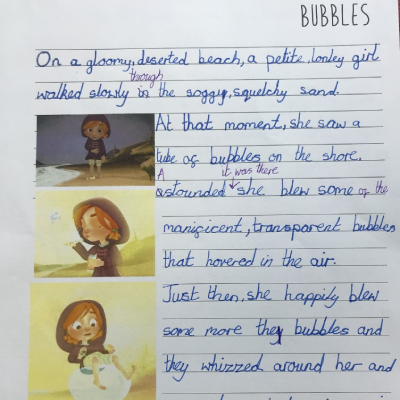 BUBBLES
On a gloomy, deserted beach, a petite, lonley girl
through
walked slowly in the soggy, squelchy sand.
At that moment, she saw a
tube of bubbles on the shore.
A it was there
astounded she blew some of the
manigicent, transparent bubbles
that hovered in the air.
Just then, she happily blew
some more they bubbles and
they whizzed around her and